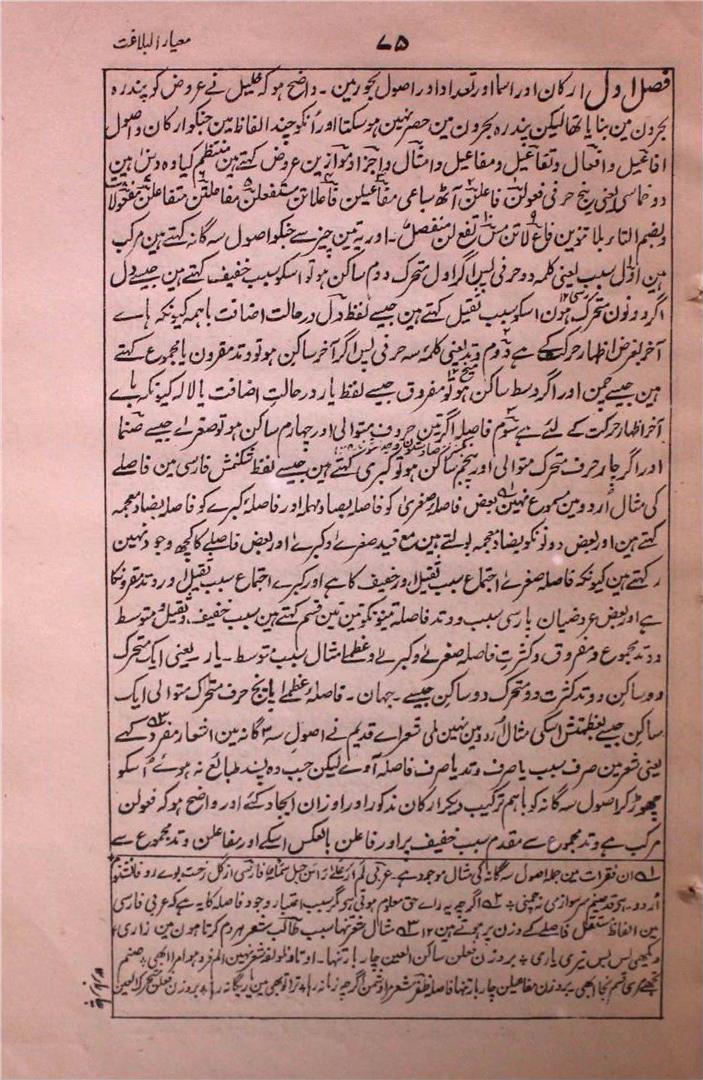 معیار البلاغت
۷۵
فصل اول ارکان اور اسما اور تعداد اور اصول بحور مین ۔ واضح ہو کہ خلیل نے عروض کو پندرہ
بحرون مین بنایا تھا لیکن پندرہ بحرون مین حصر نہین ہو سکتا اور اُنکو چند الفاظ مین جنکو ارکان و اصول
افاعیل و افعال و تفاعیل و مفاعیل و امثال و اجزا و موازین عروض کہتے ہین منتظم کیا وہ دس ہین
دو خماسی یعنی پنج حرفی فعولن فاعلن آٹھ سباعی مفاعیلن فاعلاتن مستفعلن مفاعلتن متفاعلن مفعولات
وبضم التاء بلا تنوین فاع لاتن مس تفع لن منفصل ۔ اور یہ تین چیز سے جنکو اصول سہ گانہ کہتے ہین مرکب
ہین اول سبب یعنی کلمہ دو حرفی پس اگر اول متحرک دوم ساکن ہو تو اسکو سبب خفیف کہتے ہین جیسے دل
اگر دونون متحرک ہون اسکو سبب ثقیل کہتے ہین جیسے لفظ دل در حالت اضافت با ہمہ کیونکہ ہاے
آخر بغرض اظہار حرکت کے ہے دوم وتد یعنی کلمہ سہ حرفی پس اگر آخر ساکن ہو تو وتد مقرون یا مجموع کہتے
ہین جیسے چمن اور اگر وسط ساکن ہو تو مفروق جیسے لفظ یار در حالت اضافت یا لالہ کیونکہ ہاے
آخر اظہار حرکت کے لئے ہے سوم فاصلہ اگر تین حروف متوالی اور چہارم ساکن ہو تو صغرے جیسے صنما
اور اگر چار حرف متحرک متوالی اور پنجم ساکن ہو تو کبری کہتے ہین جیسے لفظ شکنمش فارسی مین فاصلے
کی مثال اُردو مین مسموع نہین بعض فاصلہ صغری کو فاصلہ بصاد مہملہ اور فاصلہ کبرے کو فاضلہ بضاد معجمہ
کہتے ہین اور بعض دونونکو بضاد معجمہ بولتے ہین مع قید صغرے و کبرے اور بعض فاصلے کا کچھ وجود نہین
رکہتے ہین کیونکہ فاصلہ صغرے اجتماع سبب ثقیل اور خفیف کا ہے اور کبرے اجتماع سبب ثقیل اور وتد مقرونکا
ہے اور بعض عروضیان پارسی سبب و وتد فاصلہ تینونکو تین تین قسم کہتے ہین سبب خفیف و ثقیل و متوسط
و وتد مجموع و مفروق و کثرت فاصلہ صغرے و کبرے و عظمے مثال سبب متوسط ۔ یار یعنی ایک متحرک
دو ساکن و وتد کثرت دو متحرک دو ساکن جیسے ۔ جہان ۔ فاصلہ عظمے پانچ حرف متحرک متوالی ایک
ساکن جیسے اسکی مثال اُردو مین نہین ملی شعراے قدیم نے اصول سہ گانہ مین اشعار مفرد کہے
یعنی شعر مین صرف سبب یا صرف وتد یا صرف فاصلہ آوے لیکن جب وہ پسند طبائع نہ ہوئے اُسکو
چھوڑ کر اصول سہ گانہ کو باہم ترکیب دیکر ارکان مذکور اور اوزان ایجاد کئے اور واضح ہو کہ فعولن
مرکب ہے وتد مجموع سے مقدم سبب خفیف پر اور فاعلن بالعکس اسکے اور مفاعلن وتد مجموع سے
ان فقرات مین جملہ اصول سہ گانہ کی مثال موجود ہے عربی لم ار علی راس جبل سمکۃ فارسی از گل رخت بوے
اگرچہ یہ راے حق معلوم ہوتی ہے مگر سبب اعتبار وجود فاصلہ کا یہ ہے کہ عربی فارسی
مین الفاظ مستقل فاصلے کے وزن پر
بر وزن فعلن ساکن العین چار بار
بر وزن مفاعیلن چار بار